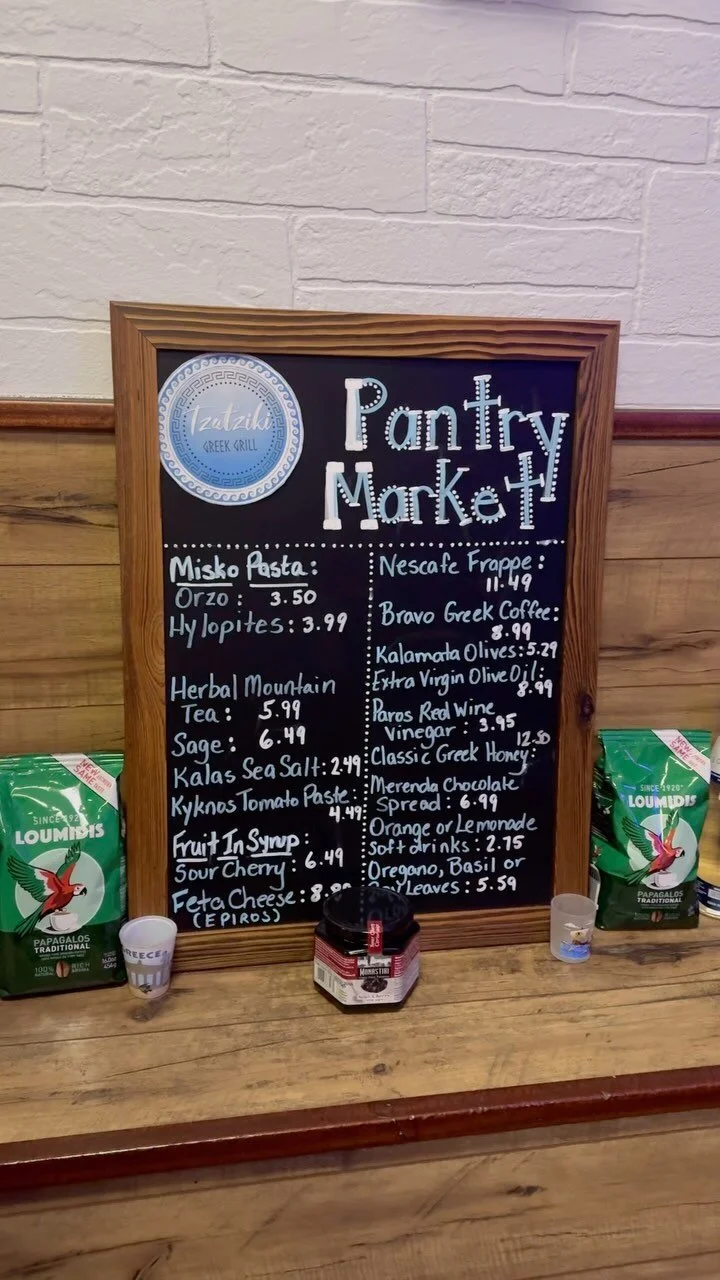 Tzatziki
GREEK GRILL
Pantry
Market
Misko Pasta:
Orzo: 3.50
Hylopites: 3.99
Herbal Mountain
Tea: 5.99
Sage: 6.49
Kalas Sea Salt: 2.49
Kyknos Tomato Paste:
4.49
Fruit In Syrup:
Sour Cherry: 6.49
Feta Cheese:
(EPIROS)
Nescafe Frappe:
11.49
Bravo Greek Coffee:
8.99
Kalamata Olives: 5.29
Extra Virgin Olive Oil:
8.99
Paros Red Wine
Vinegar: 3.95
12.50
Classic Greek Honey:
Merenda Chocolate
Spread: 6.99
Orange or Lemonade
Soft drinks: 2.75
Oregano, Basil or
Leaves: 5.59
NEW
SAME
SINCE 1920
LOUMIDIS
PAPAGALOS
TRADITIONAL
100% RICH
GREECE
MONASTIRI
NEW
SAME
SINCE 1920
LOUMIDIS
PAPAGALOS
TRADITIONAL